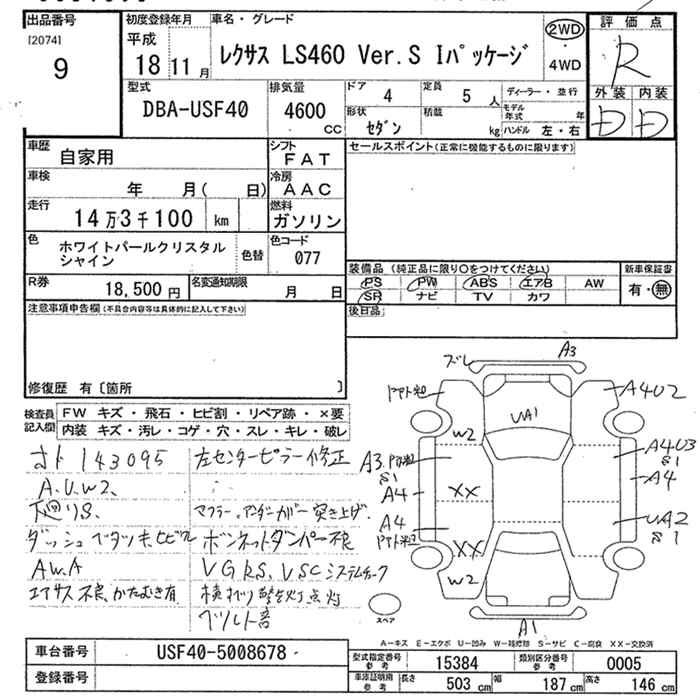 出品番号
[2074]
9
初度登録年月
平成
18 11 月
車名・グレード
レクサス LS460 Ver.S Iパッケージ
2WD
・
4WD
評価点
R
外装 内装
型式
DBA-USF40
排気量
4600
CC
ドア 4
定員 5 人
形状 セダン
積載 kg
ディーラー・並行
モデル年式 年
ハンドル 左・右
車歴 自家用
シフト FAT
車検 年 月( 日)
冷房 AAC
走行 14万3千100 km
燃料 ガソリン
色 ホワイトパールクリスタル
シャイン
色替
色コード 077
R券 18,500円
名変通知期限 月 日
セールスポイント(正常に機能するものに限ります)
装備品 (純正品に限り○をつけてください)
新車保証書
PS PW ABS エアB AW
SR ナビ TV カワ
有・無
後日品
注意事項申告欄(不具合内容等は具体的に記入して下さい)
修復歴 有〔箇所 〕
検査員記入欄
FW キズ・飛石・ヒビ割・リペア跡・×要
内装 キズ・汚レ・コゲ・穴・スレ・キレ・破レ
オト 143095
左センターピラー修正
A.U.W2.
マフラー、アンダーカバー突き上げ
ダッシュベタツキ、ヒビワレ
ボンネットダンパー不良
AW.A
VGRS、VSCシステムチェック
エアサス不良、かたむき有
横すべり警告灯点灯
ベルト音
ズレ
A3
A402
UA1
W2
A3
S1
A4
A4
XX
XX
W2
A403
S1
A4
UA2
S1
A1
スペア
A-キズ E-エクボ U-凹み W-補修跡 S-サビ C-腐食 XX-交換済
車台番号 USF40-5008678
登録番号
型式指定番号 参考 15384
類別区分番号 参考 0005
車庫証明記入 参考 長さ 503 cm 幅 187 cm 高さ 146 cm